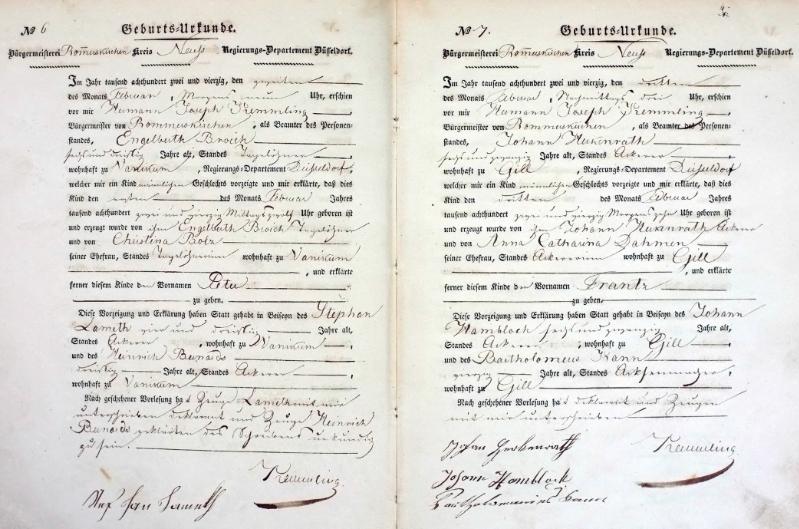 No 6 Geburts-Urkunde.
Bürgermeisterei Rommerskirchen Kreis Neuß Regierungs-Departement Düsseldorf.
Im Jahr tausend achthundert zwei und vierzig, den zweiten
des Monats Februar, Morgens neun Uhr, erschien
vor mir Hermann Joseph Kremmling
Bürgermeister von Rommerskirchen, als Beamter des Personen-
standes, Engelberth Broich
sechs und dreißig Jahre alt, Standes Tagelöhner
wohnhaft zu Vanikum, Regierungs-Departement Düsseldorf,
welcher mir ein Kind männlichen Geschlechts vorzeigte und mir erklärte, daß dies
Kind den ersten des Monats Februar Jahres
tausend achthundert zwei und vierzig Mittags zwölf Uhr geboren ist
und erzeugt wurde von ihm Engelberth Broich Tagelöhner
und von Christina Bolz
seiner Ehefrau, Standes Tagelöhnerin wohnhaft zu Vanikum
, und erklärte
ferner diesem Kinde den Vornamen Peter
zu geben.
Diese Vorzeigung und Erklärung haben Statt gehabt in Beiseyn des Stephan
Lameth vier und dreißig Jahre alt,
Standes Ackerer, wohnhaft zu Vanikum
und des Heinrich
dreißig Jahre alt, Standes Ackerer
wohnhaft zu Vanikum
Nach geschehener Vorlesung hat Zeuge Lameth mit mir
unterschrieben Deklarant und Zeuge Heinrich
erklärten des Schreibens unkundig
zu sein.
Lameth Kremmling
No 7. Geburts-Urkunde.
Bürgermeisterei Rommerskirchen Kreis Neuß Regierungs-Departement Düsseldorf.
Im Jahr tausend achthundert zwei und vierzig, den dritten
des Monats Februar, Nachmittags drei Uhr, erschien
vor mir Hermann Joseph Kremmling
Bürgermeister von Rommerskirchen, als Beamter des Personen-
standes, Johann
sechs und zwanzig Jahre alt, Standes Ackerer
wohnhaft zu Gill, Regierungs-Departement Düsseldorf
welcher mir ein Kind männlichen Geschlechts vorzeigte und mir erklärte, daß dies
Kind den dritten des Monats Februar Jahres
tausend achthundert zwei und vierzig Morgens zehn Uhr geboren ist
und erzeugt wurde von ihm Johann Ackerer
und von Anna Catharina Dahmen
seiner Ehefrau, Standes Ackererin wohnhaft zu Gill
, und erklärte
ferner diesem Kinde den Vornamen Frantz
zu geben.
Diese Vorzeigung und Erklärung haben Statt gehabt in Beiseyn des Johann
Hamblock sechs und zwanzig Jahre alt,
Standes Ackerer, wohnhaft zu Gill
und des Bartholomeus Kann
vierzig Jahre alt, Standes
wohnhaft zu Gill
Nach geschehener Vorlesung hat Deklarant und Zeugen
mit mir unterschrieben
Johan
Johann Hamblock Kremmling
Bartholomeus